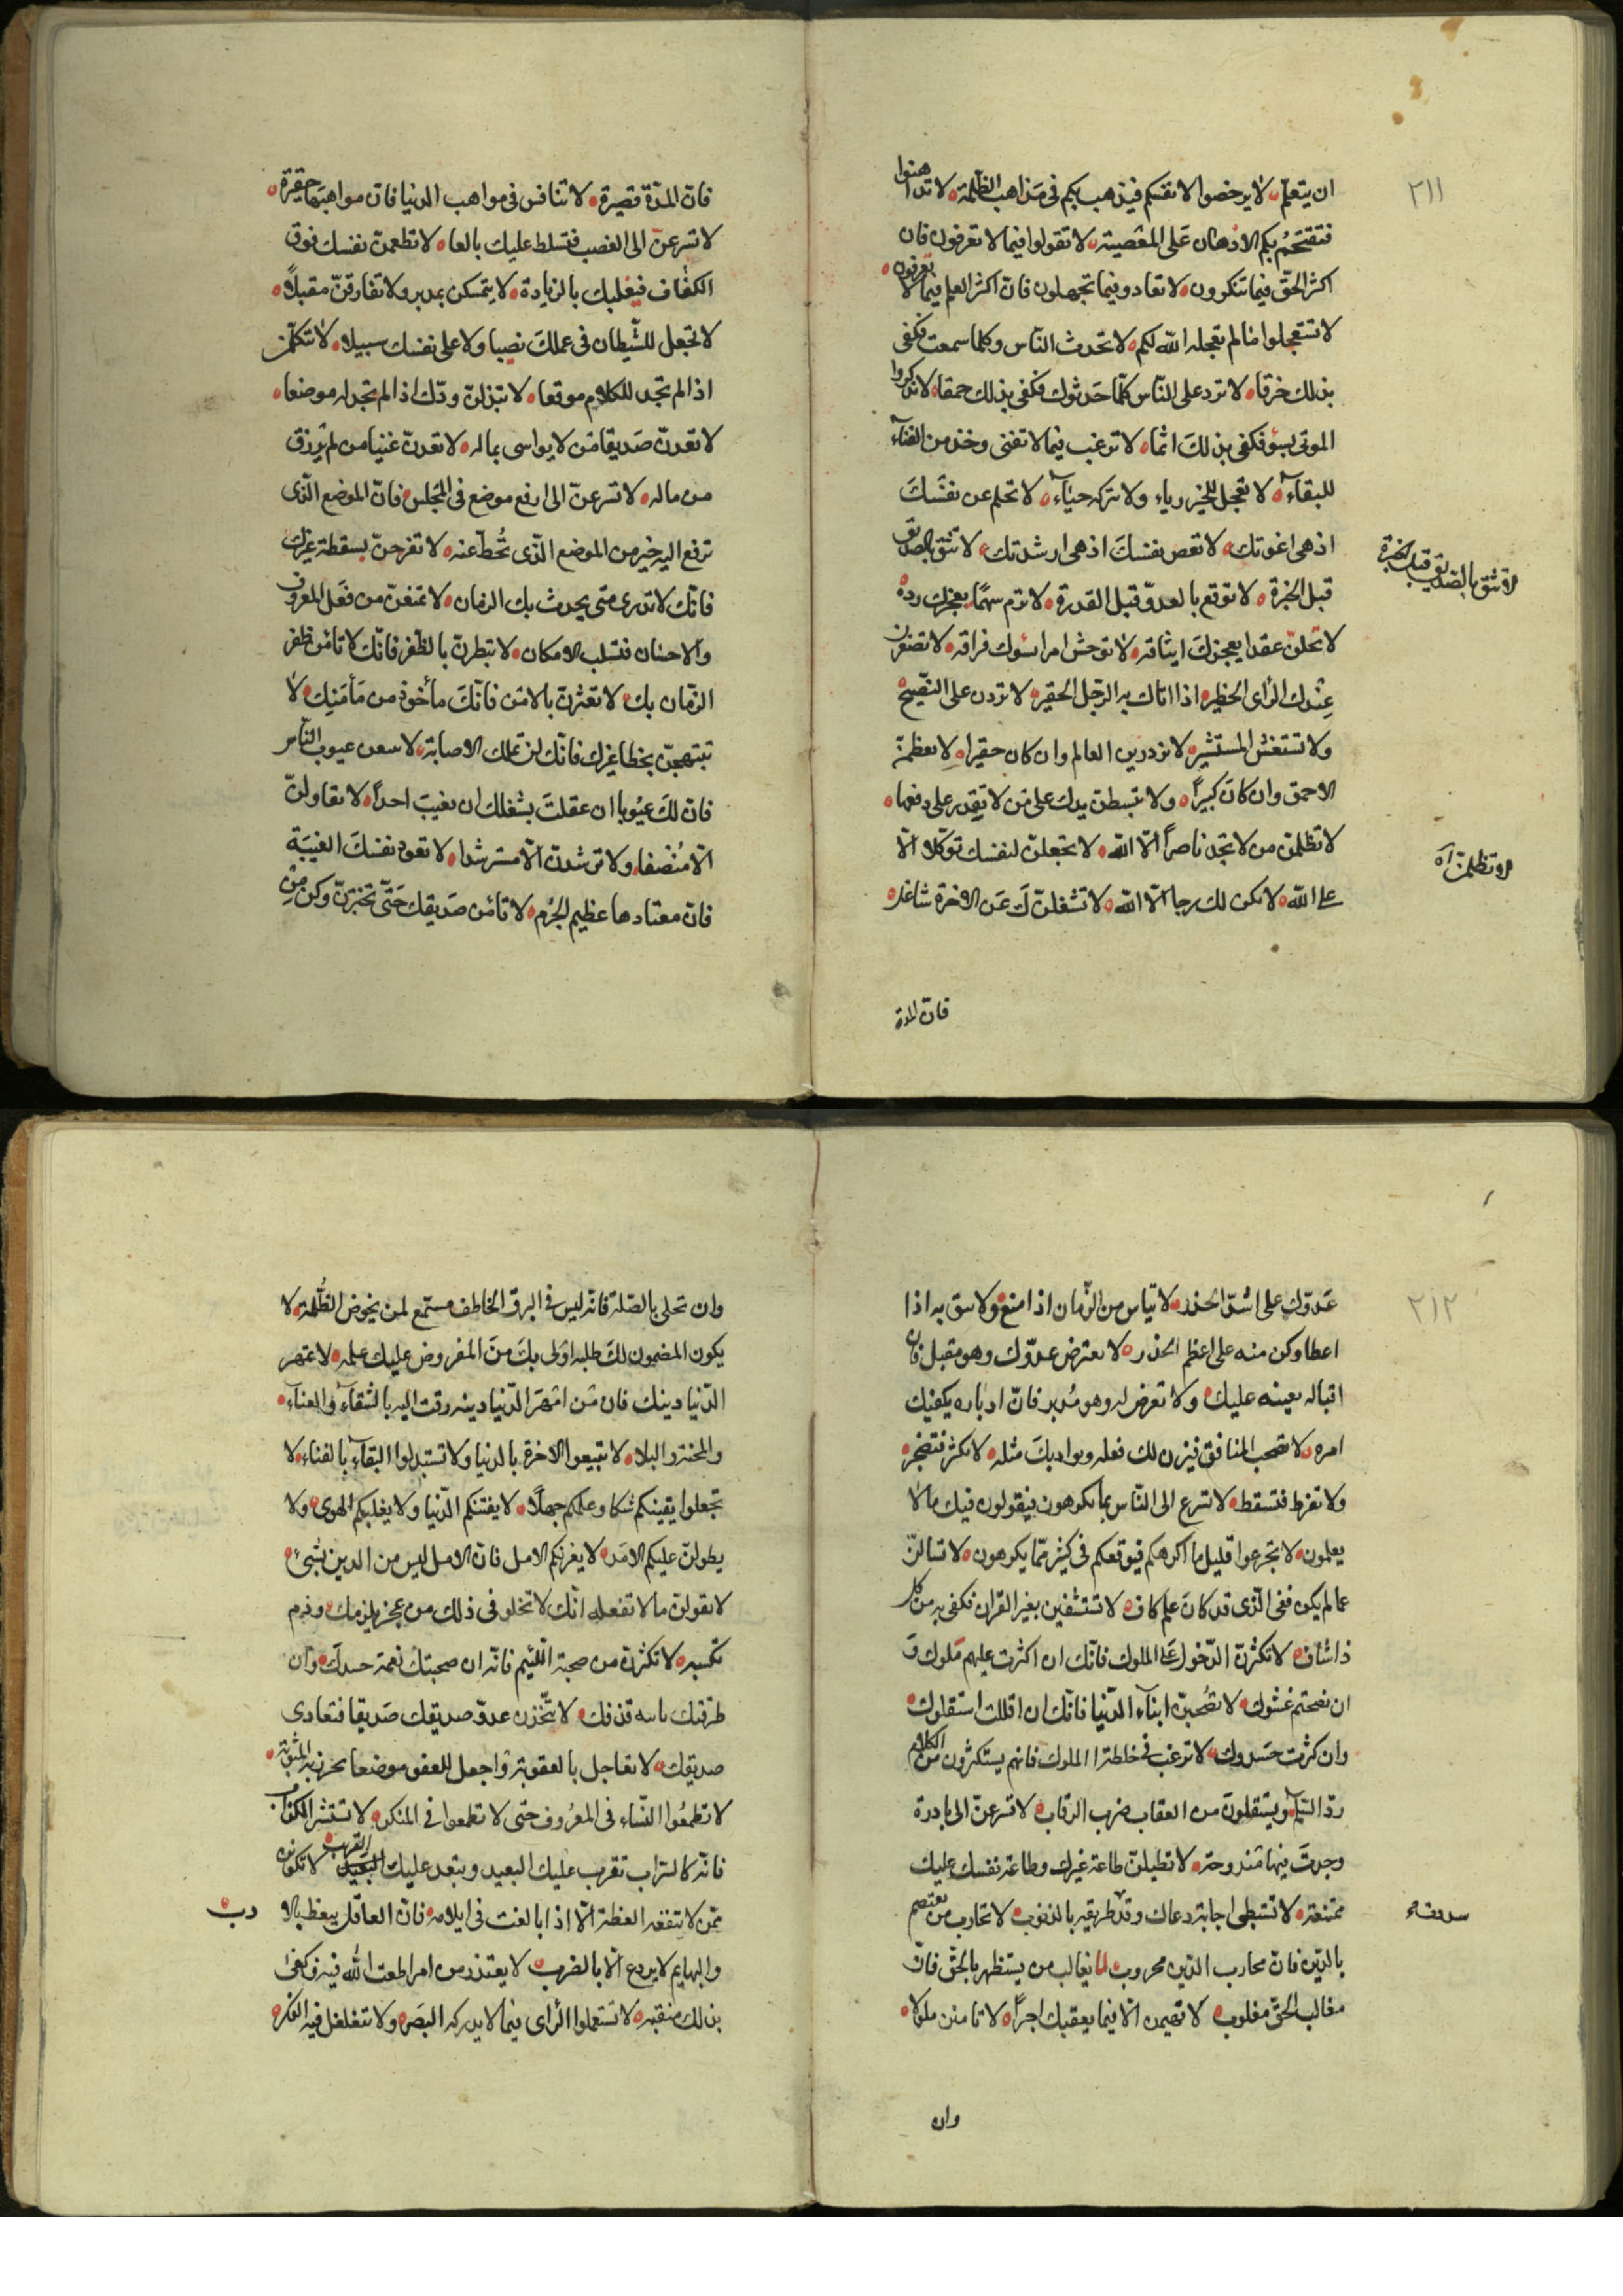 ٢١١
ان يتعلم لا يرخصوا لانفسكم فيذهب بكم فى مذاهب الظلمة لا تداهنوا
فتقتحم بكم الادهان على المعصية لا تقولوا فيما لا تعرفون فان
اكثر الحق فيما تنكرون لا تعادوا فيما تجهلون فان اكثر العلم فيما لا تعرفون
لا تستعجلوا ما لم تعجله الله لكم لا تحدث الناس وكلما سمعت فكفى
بذلك خرقا لا ترد على الناس كلما حدثوك فكفى بذلك حمقا لا تذكروا
الموتى بسوء فكفى بذلك اثما لا ترغب فيما لا تفنى وخذ من الفناء
للبقاء لا تعجل للخير رياء ولا تتركه حياء لا تحلم عن نفسك
اذ هى اغوتك لا تعص نفسك اذ هى ارشدتك لا تثق بالصديق
لا تثق بالصديق قبل الخبرة
قبل الخبرة لا توقع بالعدو قبل القدرة لا ترم سهما يعجزك رده
لا تحلن عقدا يعجزك ايثاقه لا توحش امرا يسوك فراقه لا تصغرن
عندك الراى الخطير اذا اتاك به الرجل الحقير لا تردن على النصيح
ولا تستغش المستشير لا تزدرين العالم وان كان حقيرا لا تعظمن
الاحمق وان كان كبيرا ولا تبسطن يدك على من لا تقدر على دفعها
لا تظلمن من لا تجد ناصرا الا الله لا تجعلن لنفسك توكلا الا
لا تظلمن آه
على الله لا يكن لك رجا الا الله لا تشغلن لك عن الاخرة شاغل
فان المدة
فان المدة قصيرة لا تنافس فى مواهب الدنيا فان مواهبها حقيرة
لا تسرعن الى الغضب فتسلط عليك بالعا لا تطعمن نفسك فوق
الكفاف فيغلبك بالزيادة لا يتمسكن بمدبر ولا تفارقن مقبلا
لا تجعل للشيطان فى عملك نصيبا ولا على نفسك سبيلا لا تتكلمن
اذا لم تجد للكلام موقعا لا تبذلن ودك اذا لم تجد له موضعا
لا تعدن صديقا من لا يواسى بماله لا تعدن غنيا من لم يرزق
من ماله لا تسرعن الى ارفع موضع فى المجلس فان الموضع الذى
ترفع اليه خير من الموضع الذى تحط عنه لا تفرحن بسقطة غيرك
فانك لا تدرى متى يحدث بك الزمان لا تمنعن من فعل المعروف
والاحسان فتسلب الامكان لا تبطرن بالظفر فانك لا تامن ظفر
الزمان بك لا تغترن بالامن فانك مأخوذ من مأمنك لا
تبتهجن بخطا غيرك فانك لن تملك الاصابة لا عيوب الناس
فان لك عيوبا ان عقلت يشغلك ان تعيب احدا لا تقاولن
الا منصفا ولا ترشدن الا مسترشدا لا تعود نفسك الغيبة
فان معتادها عظيم الجرم لا تأمن صديقك حتى تختبرن وكن من
٢١٢
عدوك على اشد الحذر لا تياس من الزمان اذا منع ولا تثق به اذا
اعطا وكن منه على اعظم الحذر لا تعترض عدوك وهو مقبل فان
اقباله يعينه عليك ولا تعرض له وهو مدبر فان ادباره يكفيك
امره لا تصحب المنافق فيزين لك فعله ويواد بك مثله لا تكثر فتضجر
ولا تفرط فتسقط لا تسرع الى الناس بما يكرهون فيقولون فيك ما لا
يعلمون لا تجرعوا قليل ما اكرهكم فيوقعكم فى كثير مما يكرهون لا تسالن
عما لم يكن ففى الذى قد كان علم كاف لا تستشفين بغير القران فكفى به من كل
ذا شاف لا تكثرن الدخول على الملوك فانك ان اكثرت عليهم ملوك و
ان نصحتهم غشوك لا تصحبن ابناء الدنيا فانك ان اقللت استقلوك
وان كثرت حسدوك لا ترغب فى خلطة الملوك فانهم يستكثرون من الكلام
رد السلام ويستقلون من العقاب ضرب الرقاب لا تسرعن الى بادرة
وجدت فيها مندوحة لا تطيلن طاعة غيرك وطاعة نفسك عليك
ممتنعة لا تستبطى اجابة دعاك وقد طريقه بالذنوب لا تحارب من يعتصم
بالدين فان محارب الدين محروب لا تغالب من يستظهر بالحق فان
مغالب الحق مغلوب لا تصمن الا فيما يعقبك اجرا لا تامنن ملولا
وان
وان تحلى بالصلة فانه ليس فى البرق الخاطف مستمع لمن يخوض الظلمة لا
يكون المضمون لك طلبه اولى بك من المفروض عليك عمله لا تمهر
الدنيا دينك فان من امهر الدنيا دينه زفت اليه بالشقاء والعناء
والمحنة والبلا لا تبيعوا الاخرة بالدنيا ولا تستبدلوا البقاء بالفناء لا
تجعلوا يقينكم شكا وعلمكم جهلا لا يفتنكم الدنيا ولا يغلبكم الهوى ولا
يطولن عليكم الامد لا يغرنكم الامل فان الامل ليس من الدين بشىء
لا تقولن ما لا تفعله انك لا تخلو فى ذلك من عجز يلزمك وذم
تكسبه لا تكثرن من صحبة اللئيم فانه ان صحبتك نعمة حسدك وان
طرقتك قذفك لا تتخذن عدو صديقك صديقا فتعادى
صديقك لا تعاجل بالعقوبة واجعل للعفو موضعا تحرز به المثوبة
لا تطمعوا النساء فى المعروف حتى لا تطمعوا فى المنكر لا تستشر الكذاب
فانه كالسراب تقرب عليك البعيد ويبعد عليك القريب لا تكونن
ممن لا تنفعه العظة الا اذا بالغت فى ايلامه فان العاقل يتعظ بالا
دب
والبهايم لا يردع الا بالضرب لا يعتذر من امر اطعت الله فيه فكفى
بذلك منقبة لا تستعملوا الراى فيما لا يدركه البصر ولا تتغلغل فيه الفكر